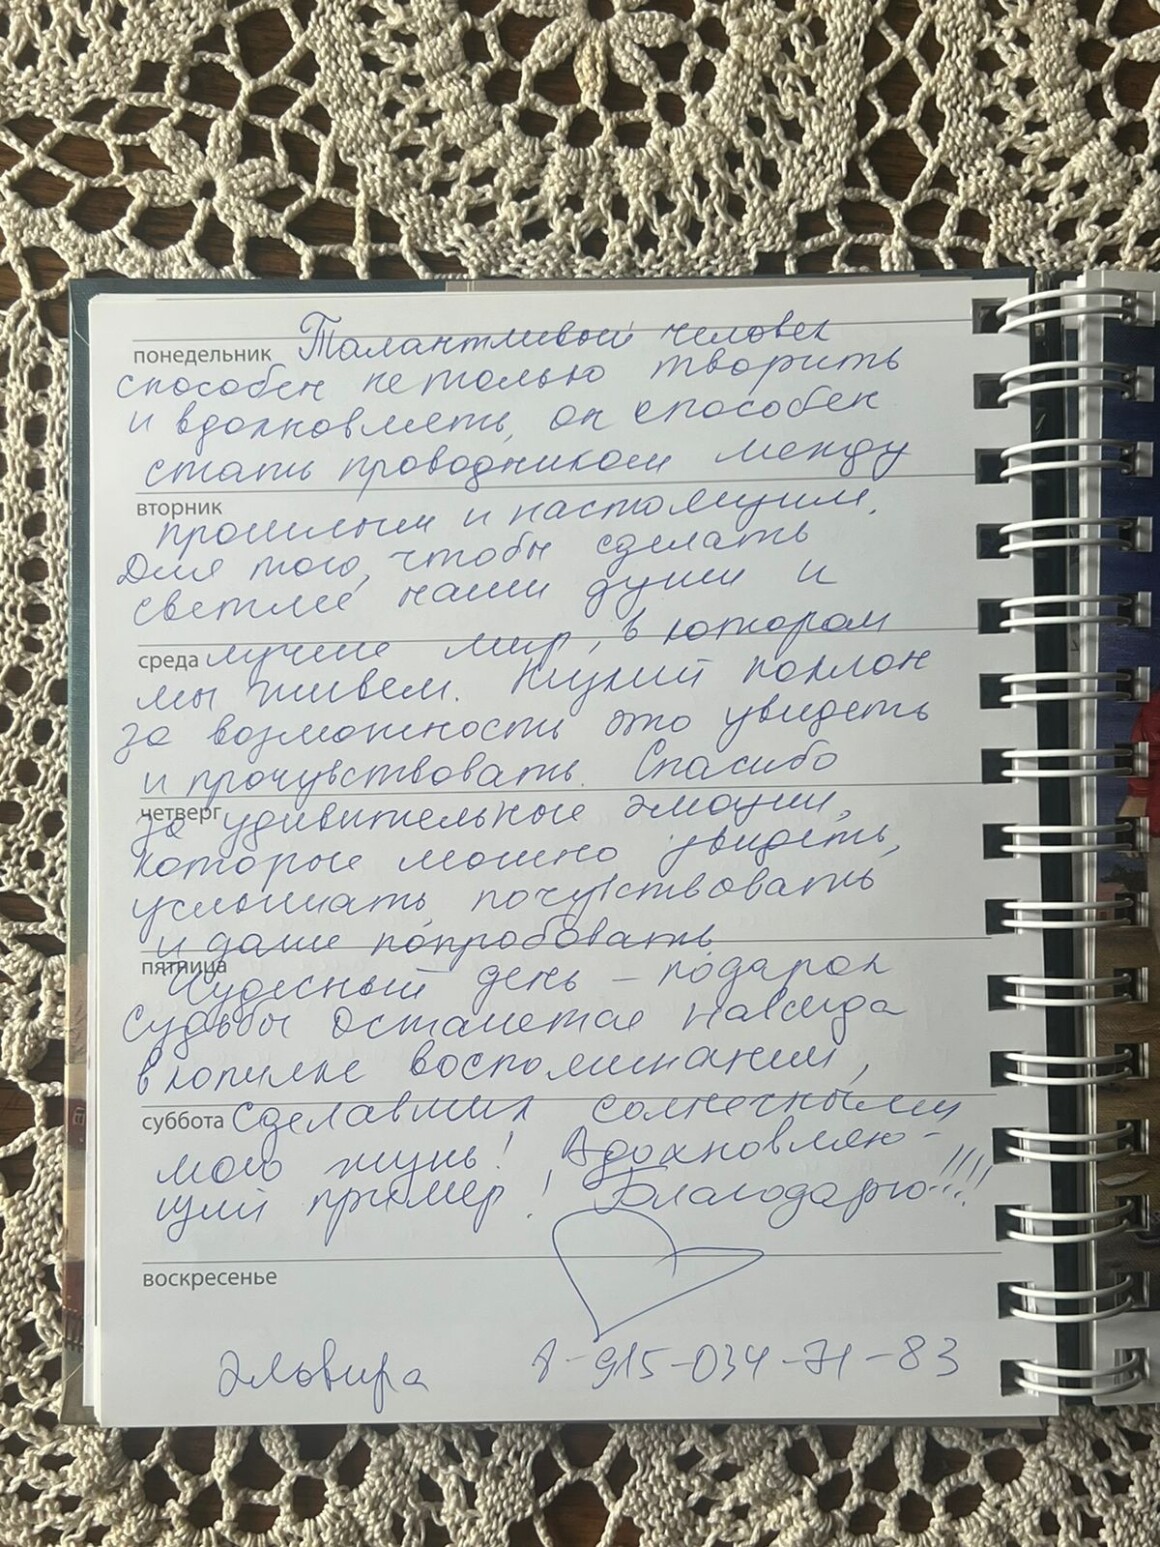 понедельник Талантливый человек
способен не только творить
и вдохновлять, он способен
стать проводником между
вторник
прошлым и настоящим,
Для того, чтобы сделать
светлее наши души и
среда лучше мир, в котором
мы живем. Низкий поклон
за возможность это увидеть
и прочувствовать. Спасибо
четверг
за удивительные эмоции,
которые можно увидеть,
услышать, почувствовать
и даже попробовать
пятница
Чудесный день – подарок
судьбы останется навсегда
в копилке воспоминаний,
суббота сделавших солнечными
мою жизнь! Вдохновляю-
щий пример! Благодарю!!!!
воскресенье
Эльвира 8-915-034-71-83